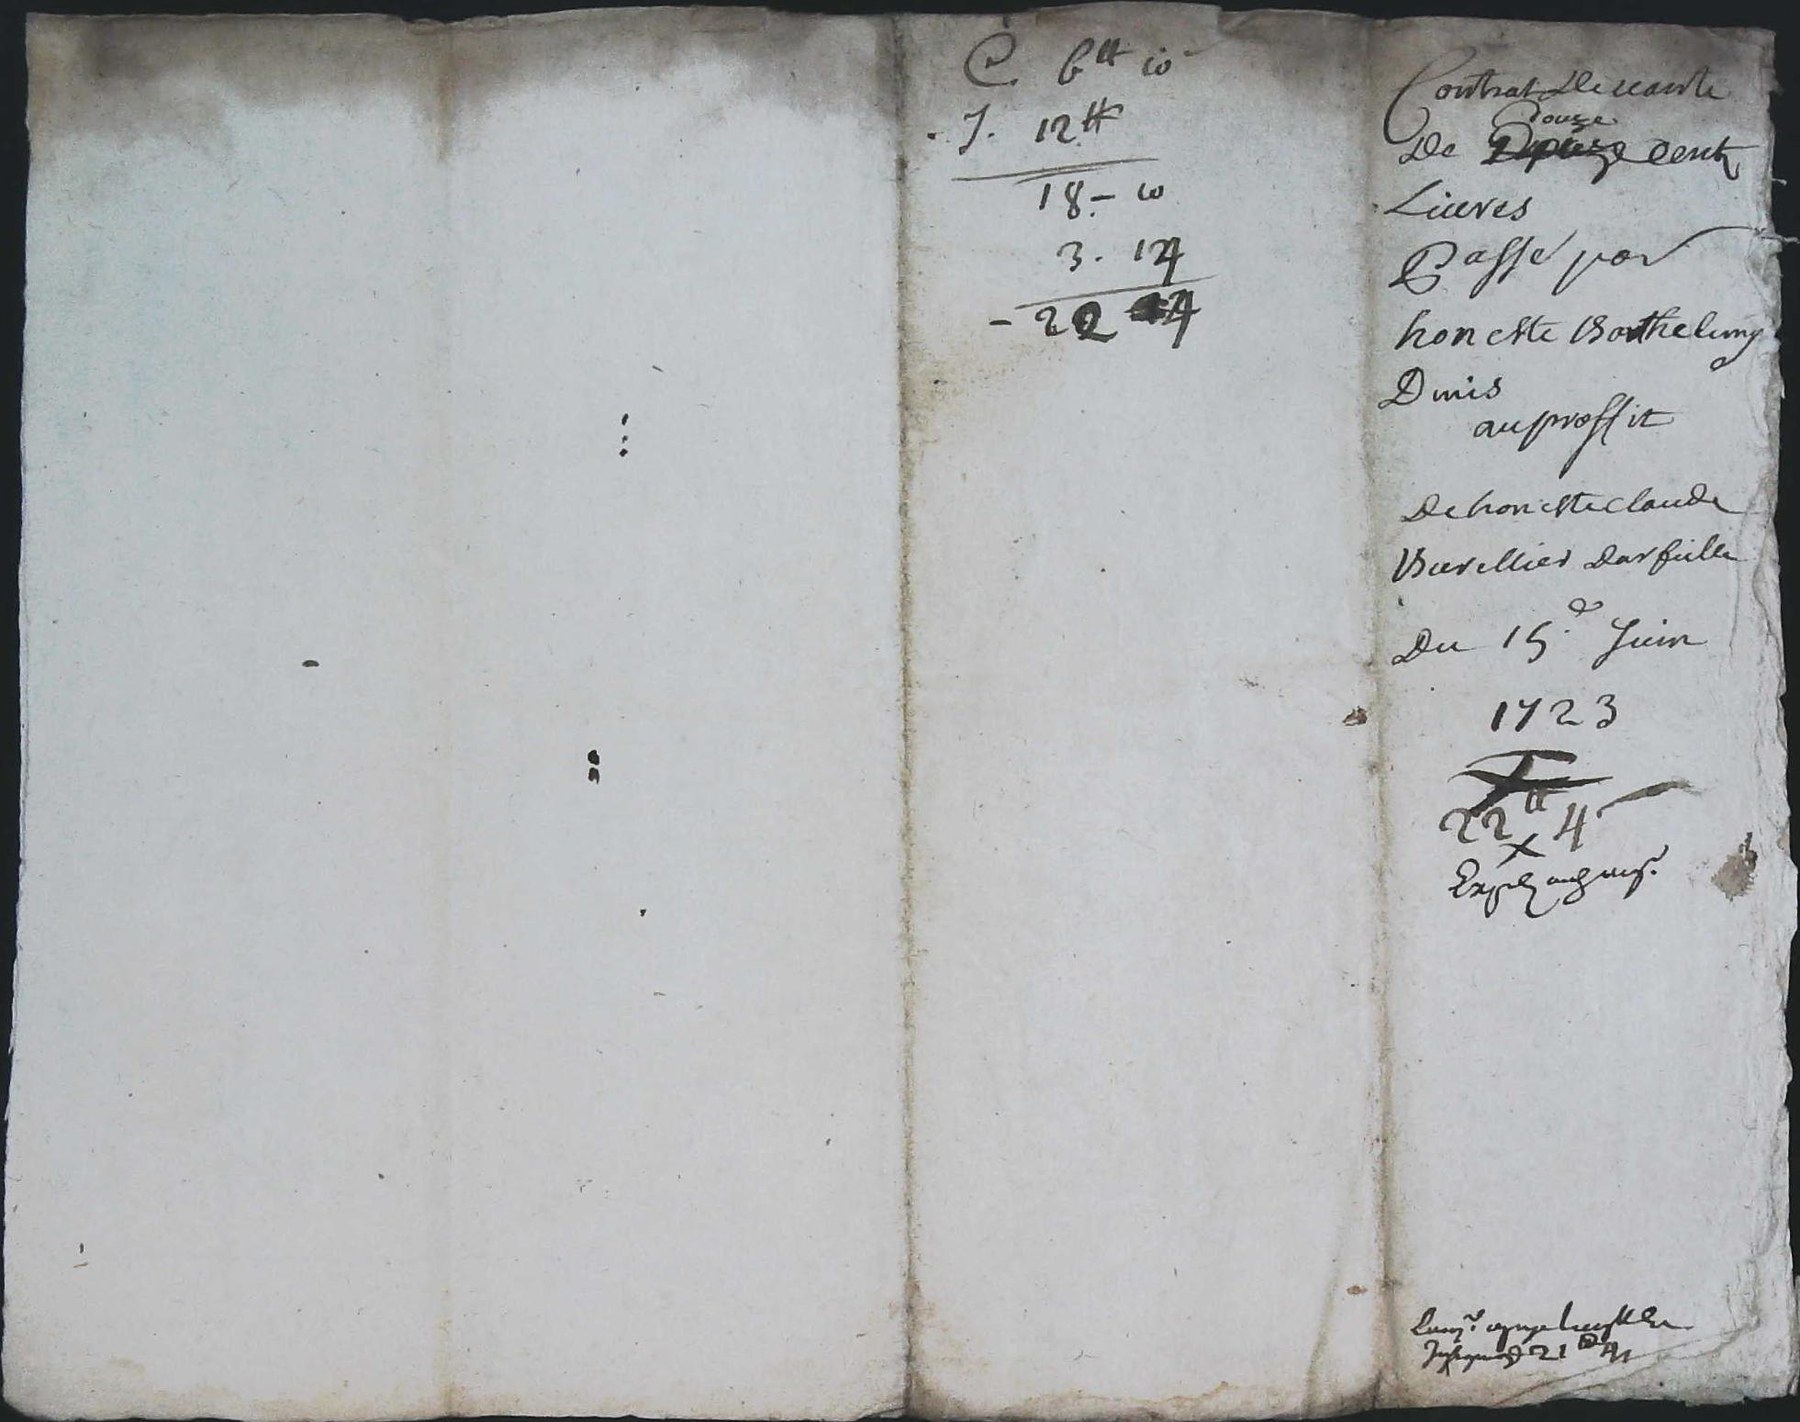 C. 6ᵗᵗ 10
J. 12ᵗᵗ
18 – 10
3 . 14
22 4
Contrat de vante
Douze
De cent
Livres
Passé par
honeste Barthelemy
Dunis
au proffit
De honeste claude
Du 15.ᵉ Juin
1723
22ᵗᵗ 4